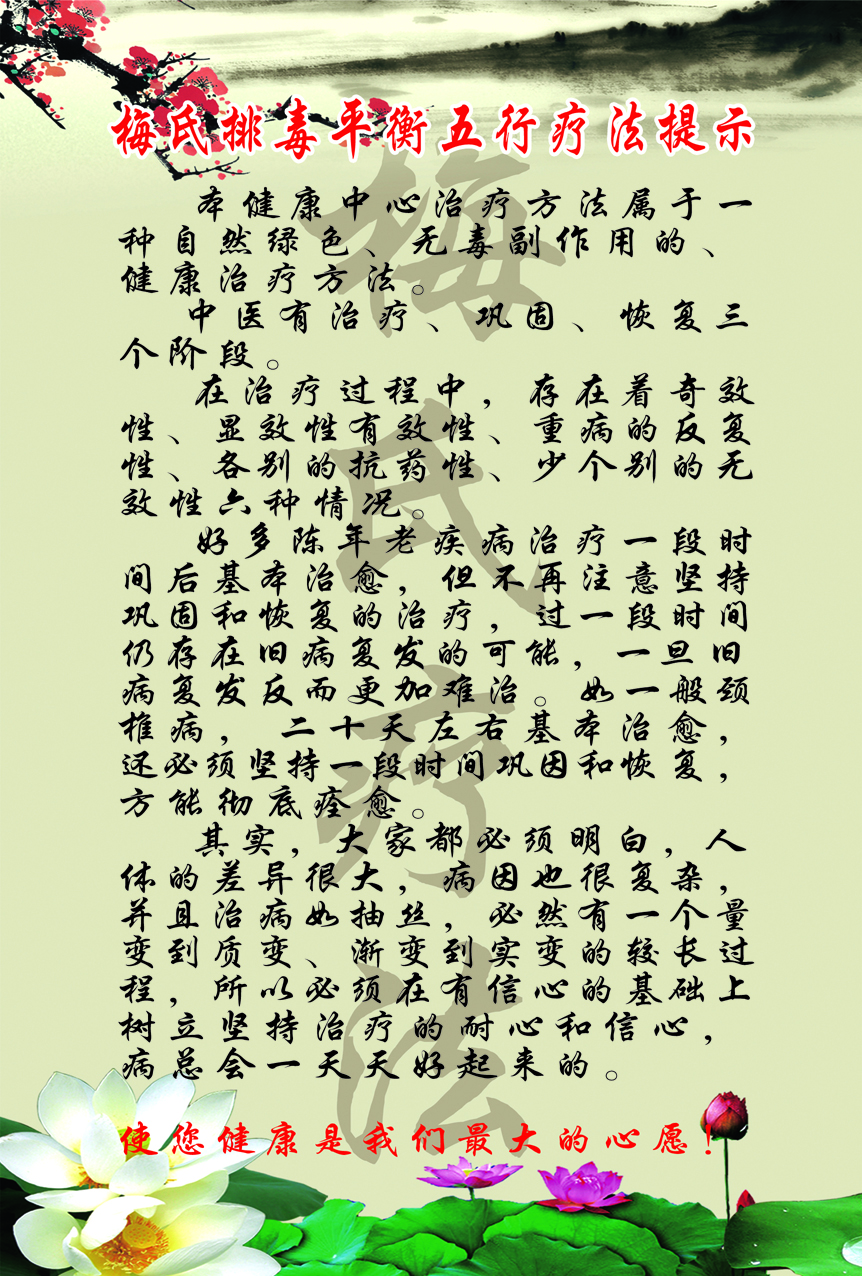 梅氏排毒平衡五行疗法提示
本健康中心治疗方法属于一
种自然绿色、无毒副作用的、
健康治疗方法。
中医有治疗、巩固、恢复三
个阶段。
在治疗过程中，存在着奇效
性、显效性有效性、重病的反复
性、各别的抗药性、少个别的无
效性六种情况。
好多陈年老疾病治疗一段时
间后基本治愈，但不再注意坚持
巩固和恢复的治疗，过一段时间
仍存在旧病复发的可能，一旦旧
病复发反而更加难治。如一般颈
椎病，二十天左右基本治愈，
还必须坚持一段时间巩因和恢复，
方能彻底痊愈。
其实，大家都必须明白，人
体的差异很大，病因也很复杂，
并且治病如抽丝，必然有一个量
变到质变、渐变到实变的较长过
程，所以必须在有信心的基础上
树立坚持治疗的耐心和信心，
病总会一天天好起来的。
使您健康是我们最大的心愿！
梅氏疗法